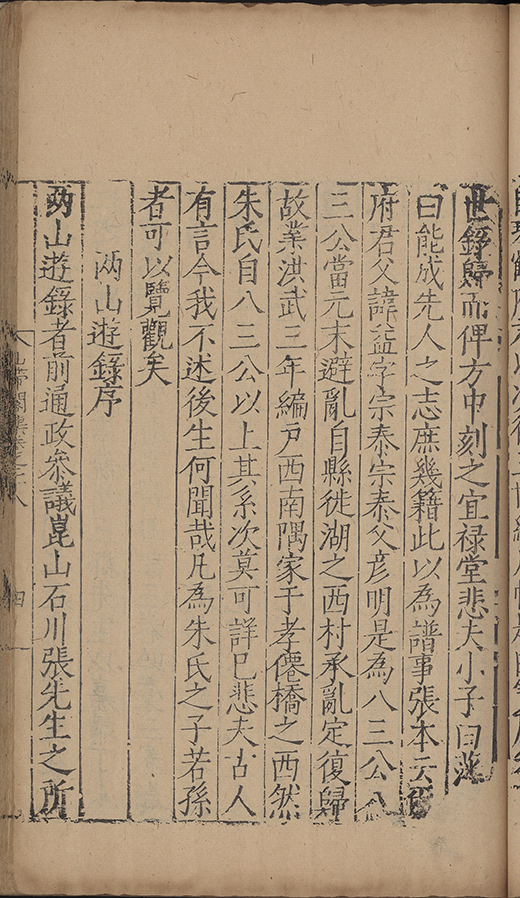 世錄歸而俾方中刻之宜祿堂悲夫小子曰
曰能成先人之志庶幾籍此以為譜事張本云
府君父諱益字宗泰宗泰父彥明是為八三公八
三公當元末避亂自縣徙湖之西村承亂定復歸
故業洪武三年編戶西南隅家于孝僊橋之西然
朱氏自八三公以上其系次莫可詳已悲夫古人
有言今我不述後生何聞哉凡為朱氏之子若孫
者可以覽觀矣
兩山遊錄序
兩山遊錄者前通政參議崑山石川張先生之所
山帶閣集卷三十八
四